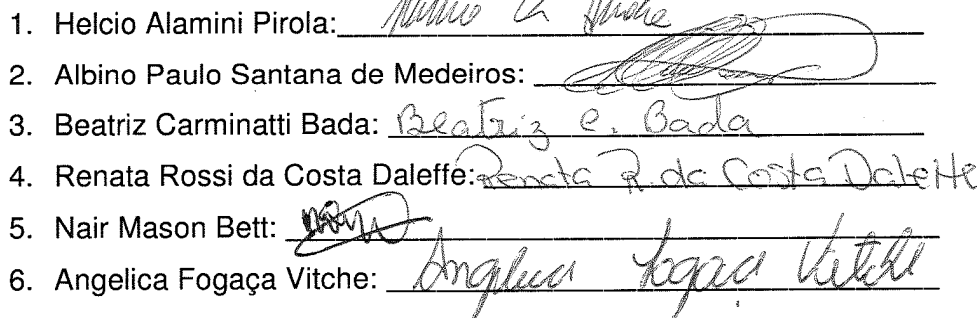 1. Helcio Alamini Pirola:
2. Albino Paulo Santana de Medeiros:
3. Beatriz Carminatti Bada: Beatriz C. Bada
4. Renata Rossi da Costa Daleffe: Renata R. da Costa Daleffe
5. Nair Mason Bett:
6. Angelica Fogaça Vitche: Angelica Fogaça Vitche